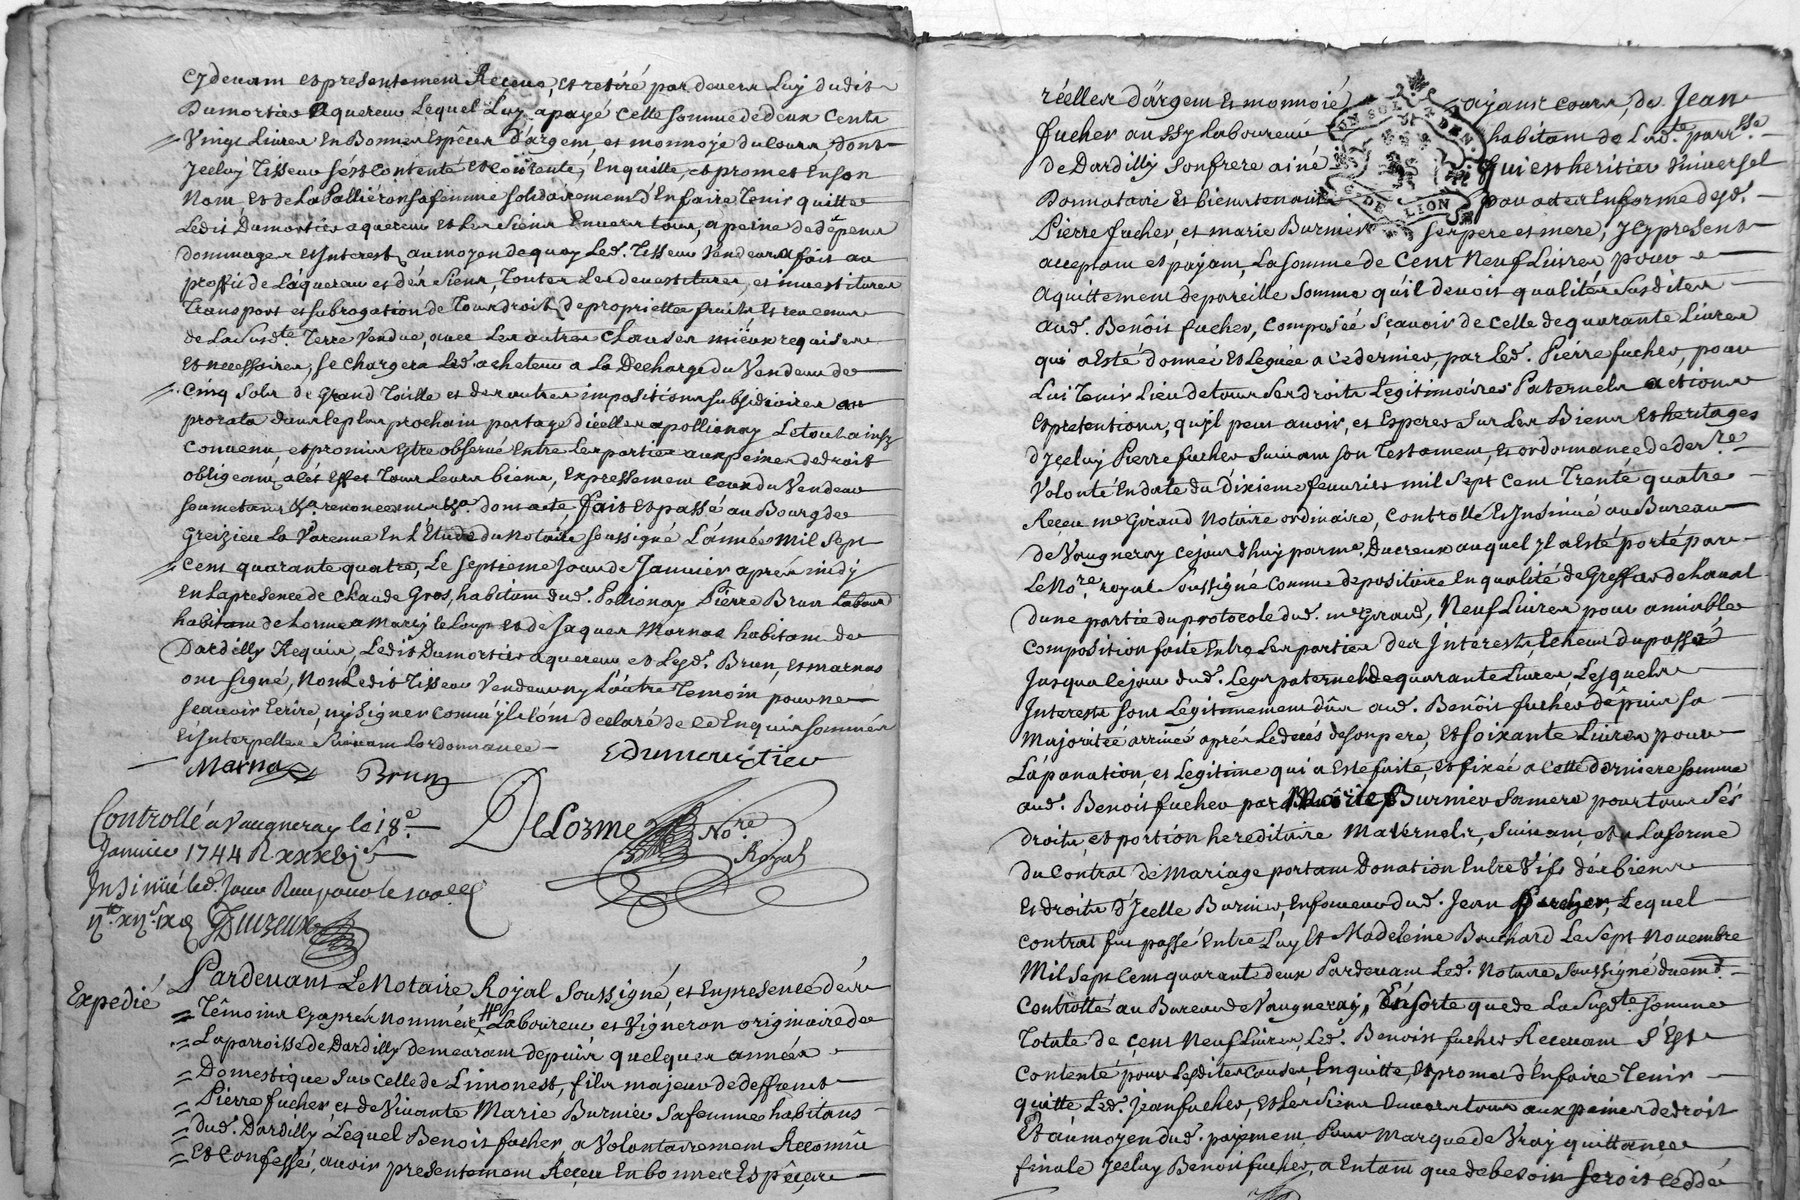 Cydevam et presentement Receue, et retiré par devers Luy dudit
Dumortier aquereur Lequel Luy a payé cette somme de deux Cents
Vingt Livres En Bonnes Espêces d'argent, et monnoye du Cours, dont
Jceluy Tisseur s'est contenté et Enquitte, et promet En son
Nom, et de La Pallieron sa femme solidairement d'En faire Tenir quitte
Ledit Dumortier aquereur et les siens Envers tous, a peine de dêpens
dommages et Interest au moyen de quoy Led. Tisseur Vendeur a fait au
proffit de L'aquereur et des siens, Toutes Les devestitures, et investitures
Transport et subrogation de Tous droits de proprietté fruits et revenus
de La Susd.te Terre Vendue, avec Les autres Clauses mieux requises
Et necessoires, se chargera Led. acheteur a La Decharge du Vendeur de
Cinq Sols de Grand Taille et des autres impositions subsidiaires au
prorata dans le plus prochain partage d'icelles a pollionay Le tout ainsy
Convenu, et promis Estre observé Entre Les parties aux peines de droit
obligeant a cet Effet Tous Leurs biens, Expressement Ceux du Vendeur
soumetant &a. renonceant &a. dont acte, fait et passé au Bourg de
Greizieu La Varenne En L'Etude du Notaire soussigné L'année Mil Sept
Cent quarante quatre, Le septieme Jour de Janvier après midy
En La presence de Claude Gros, habitant dud. Pollionay Pierre Brun Labour
habitant de Lorme a Marcy le Loup et de Jaques Marnas habitant de
Dardilly Requis, Ledit Dumortier aquereur et Lesd. Brun, et marnas
ont signé, Non Ledit Tisseur Vendeur ny L'autre Temoin pour ne
sçavoir Ecrire, ny signer comm'jls l'ont declaré de ce Enquis sommés
Et Interpellés Suivant Lordonnance
Marnas Brun EDumortier
Controllé a Vaugneray le 18e
Janvier 1744 R
DeLorme No.re Royal
Insinué led. Jour
Ducreux
Expedié
Pardevant Le Notaire Royal Soussigné, et En presence des
Têmoins Cy après nommés, Laboureur et Vigneron originaire de
La parroisse de Dardilly demeurant depuis quelques années
Domestique Sur celle de Limonest, fils majeur de deffunt
Pierre fucher, et de Vivante Marie Burnier sa femme habitans
dud. Dardilly Lequel Benoit fucher, a Volontairement Reconnû
Et Confessé, avoir presentement Receu En bonnes Espêçes
réelles d'argent et monnoié ayant cours, de Jean
fucher aussy Laboureur habitant de Lad.te parr.sse
de Dardilly son frere ainé qui est heritier Universel
Donnataire et bientenant par actes En forme desd.
Pierre fucher, et marie Burnier ses pere et mere, Jcy present
acceptant et payant, La somme de Cent Neuf Livres pour
aquittement de pareille somme qu'il devoit qualités susdites
aud. Benôit fucher, Composée sçavoir de Celle de quarante Livres
qui a Esté donnée et Leguée a ce dernier, par Led. Pierre fucher, pour
Lui Tenir Lieu de tous ses droits Legitimoires Paternels actions
Et pretentions, qu'jl peut avoir, et Esperer Sur Les Biens et heritages
d'Jceluy Pierre fucher Suivant son Testament, et ordonnance de der.re
Volonté En date du Dixieme fevrier mil sept Cent Trente quatre
Receu me Giraud Notaire ordinaire, Controllé et Insinué au Bureau
de Vaugneray ce jourd'huy par me. Ducreux auquel jl a Esté porté par
Le No.re royal Soussigné Comme depositaire En qualité de
dune partie du protocole dud. me Giraud, Neuf Livres pour amiable
Composition faite Entre Les parties des Interests Echeus du passé
Jusqua ce jour dud. Legs paternel de quarante Livres, Lesquels
Interests sont Legitimement dûs aud. Benôit fucher dêpuis sa
Majorité arrivée après Le decés de son pere, Et soixante Livres pour
La et Legitime qui a Esté faite, et fixée a cette derniere somme
aud. Benoit fucher par Marie Burnier sa mere pour tous sés
droits, et portion hereditaire Maternels, suivant, et a La forme
du Contrat de Mariage portant Donation Entre Vifs dés biens
Et droits d'Jcelle Burnier, En faveur dud. Jean fucher, Lequel
Contrat fut passé Entre Luy et Madeleine Bouchard Le sept Novembre
Mil Sept Cent quarant deux Pardevant Led. Notaire Soussigné
Controllé au Bureau de Vaugneray, En sorte que de La susd.te somme
Totale de çent Neuf Livres, Led. Benoist fucher Recevant S'Est
Contenté pour Lesdites Causes, Enquitte, et promet d'En faire Tenir
quitte Led. Jean fucher, et Les siens Envers tous aux peines de droit
Et au moyen dud. payement Pour Marque de Vray quittance
finale Jceluy Benoit fucher, a Entant que de besoin seroit ceddé
DE LION